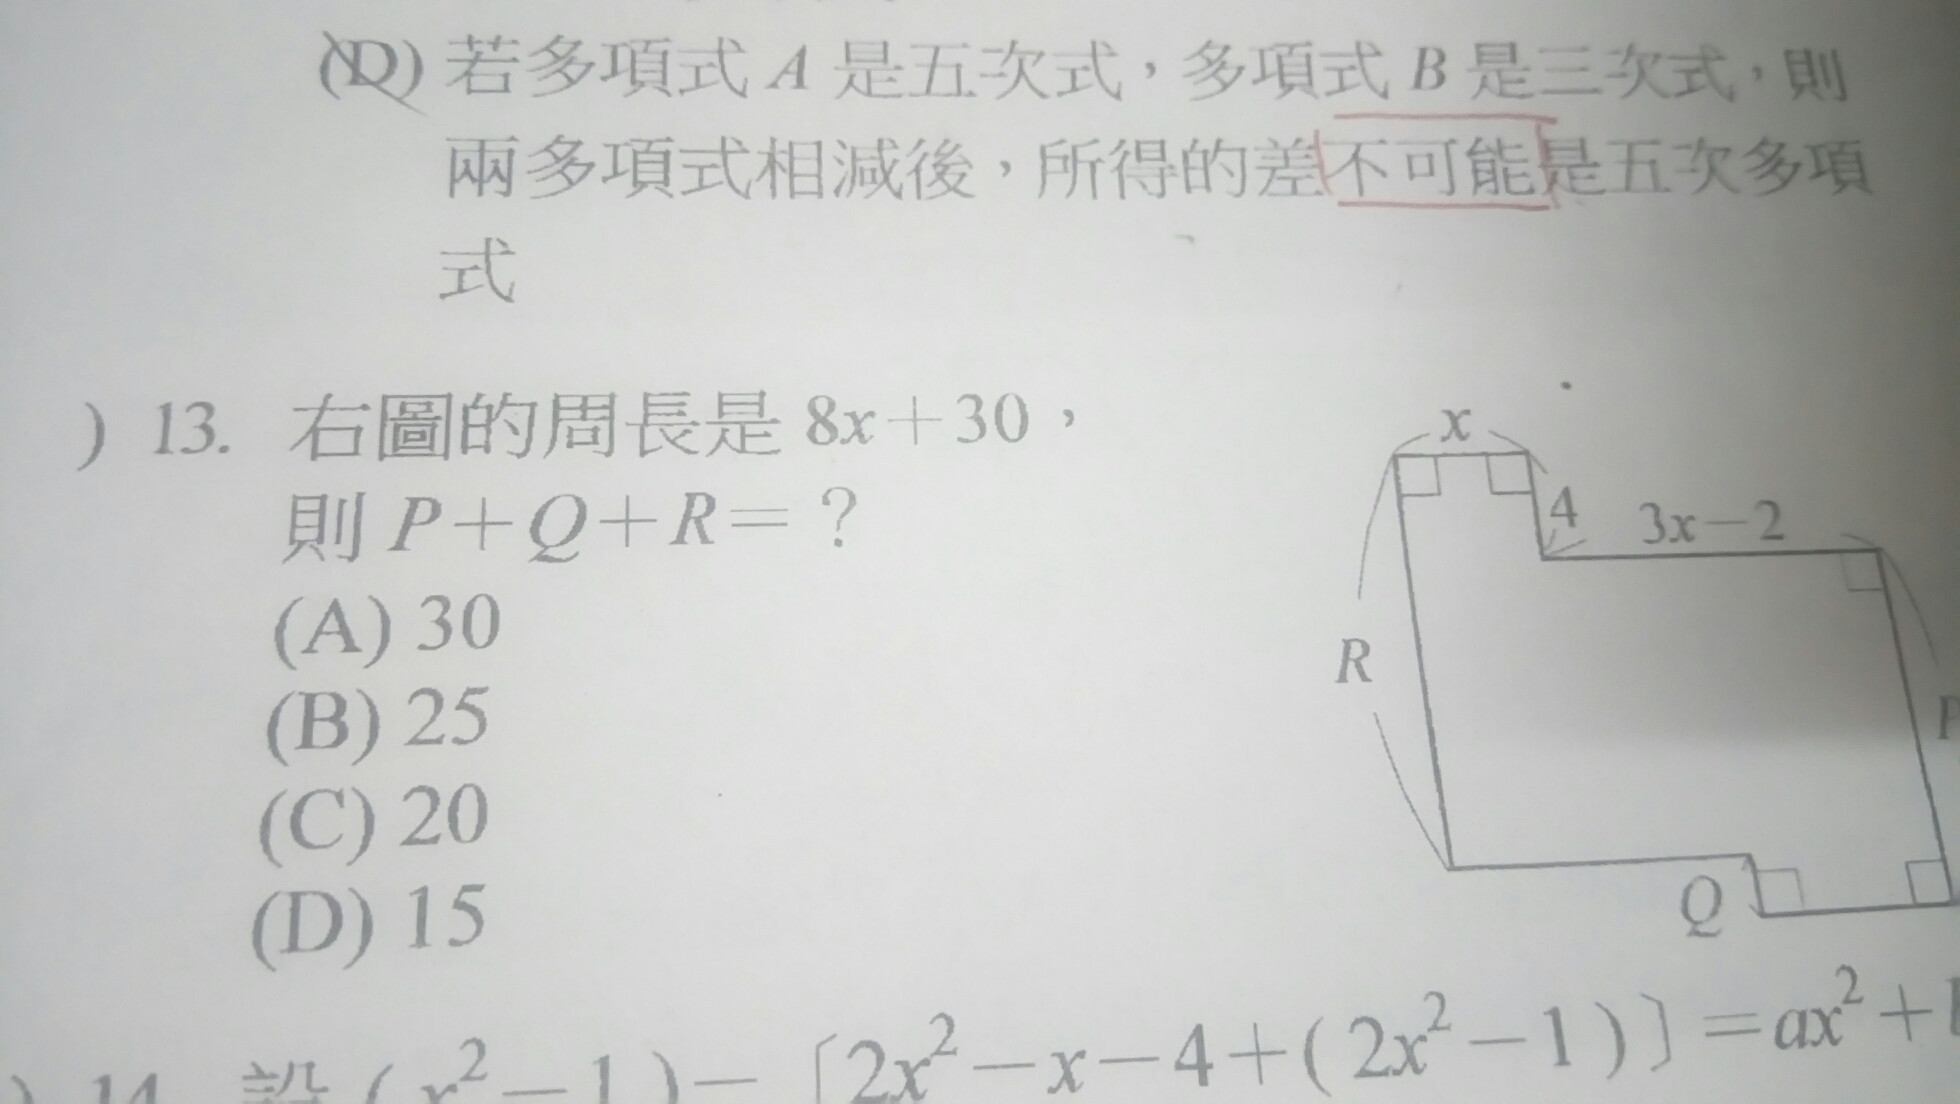 (D) 若多項式 A 是五次式，多項式 B 是三次式，則
兩多項式相減後，所得的差不可能是五次多項
式
) 13. 右圖的周長是 8x＋30，
則 P＋Q＋R＝？
(A) 30
(B) 25
(C) 20
(D) 15
x
4
3x－2
R
P
Q
) 14. 設 ( x²－1 )－〔2x²－x－4＋( 2x²－1 )〕＝ax²＋